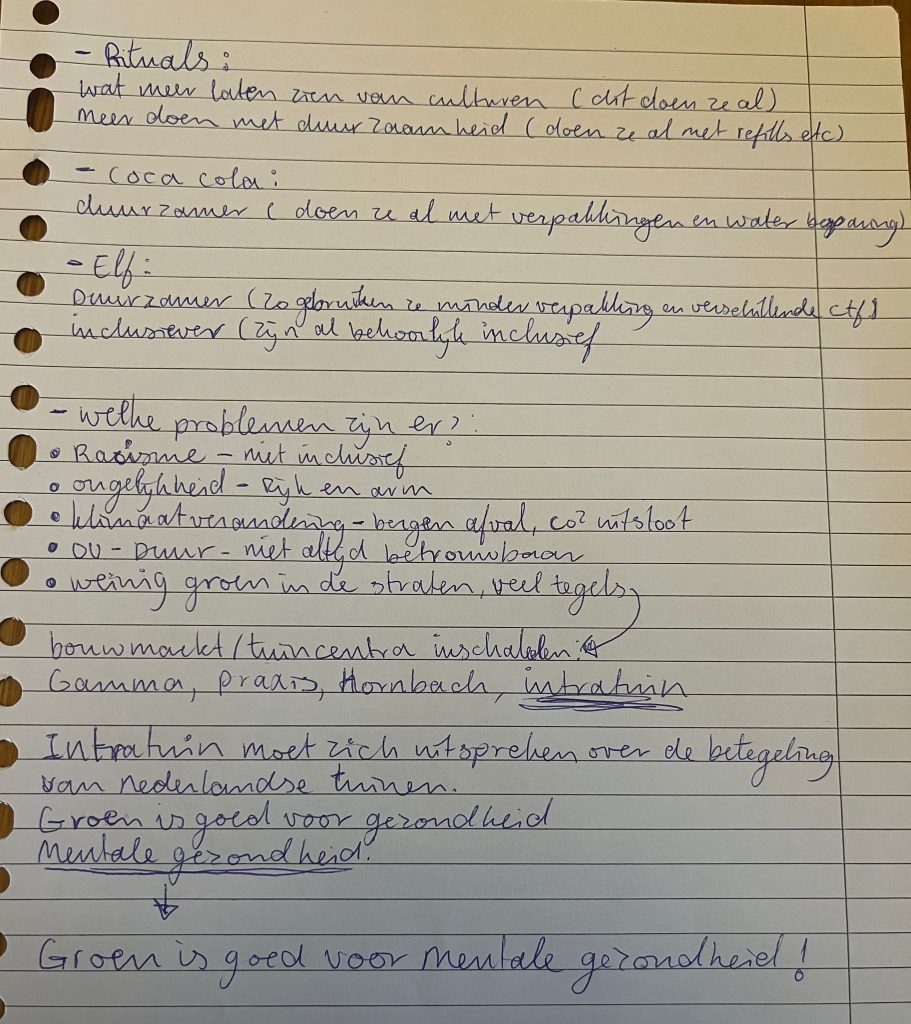 - Rituals:
wat meer laten zien van culturen (dit doen ze al)
Meer doen met duurzaamheid (doen ze al met refills etc)
- Coca cola:
duurzamer (doen ze al met verpakkingen en water besparing)
- Elf:
Duurzamer (zo gebruiken ze minder verpakking en verschillende
inclusiever (zijn al behoorlijk inclusief
- welke problemen zijn er?:
• Racisme - niet inclusief
• ongelijkheid - Rijk en arm
• klimaatverandering - bergen afval, co² uitstoot
• OV - Duur - niet altijd betrouwbaar
• weinig groen in de straten, veel tegels
bouwmarkt/tuincentra inschakelen:
Gamma, praxis, Hornbach, intratuin
Intratuin moet zich uitspreken over de betegeling
van nederlandse tuinen.
Groen is goed voor gezondheid
Mentale gezondheid.
Groen is goed voor Mentale gezondheid!